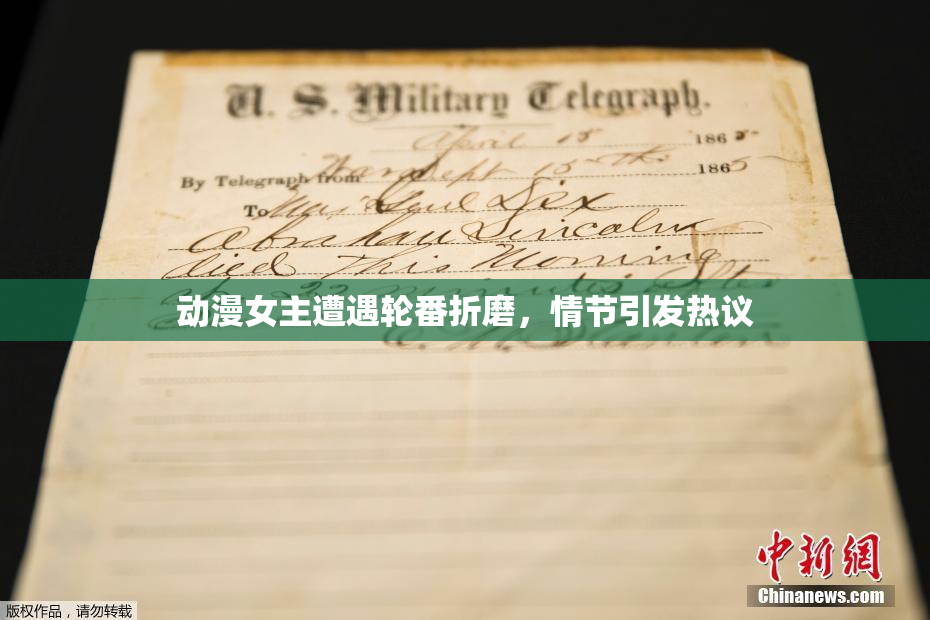 U. S. Military Telegraph.
April 15 1865
By Telegraph from War Dept 15th 1865
To Maj Genl Dix
Abraham Lincoln
died This Morning
22 minutes after
动漫女主遭遇轮番折磨，情节引发热议
E. M. Stanton
中新网
Chinanews.com
版权作品，请勿转载